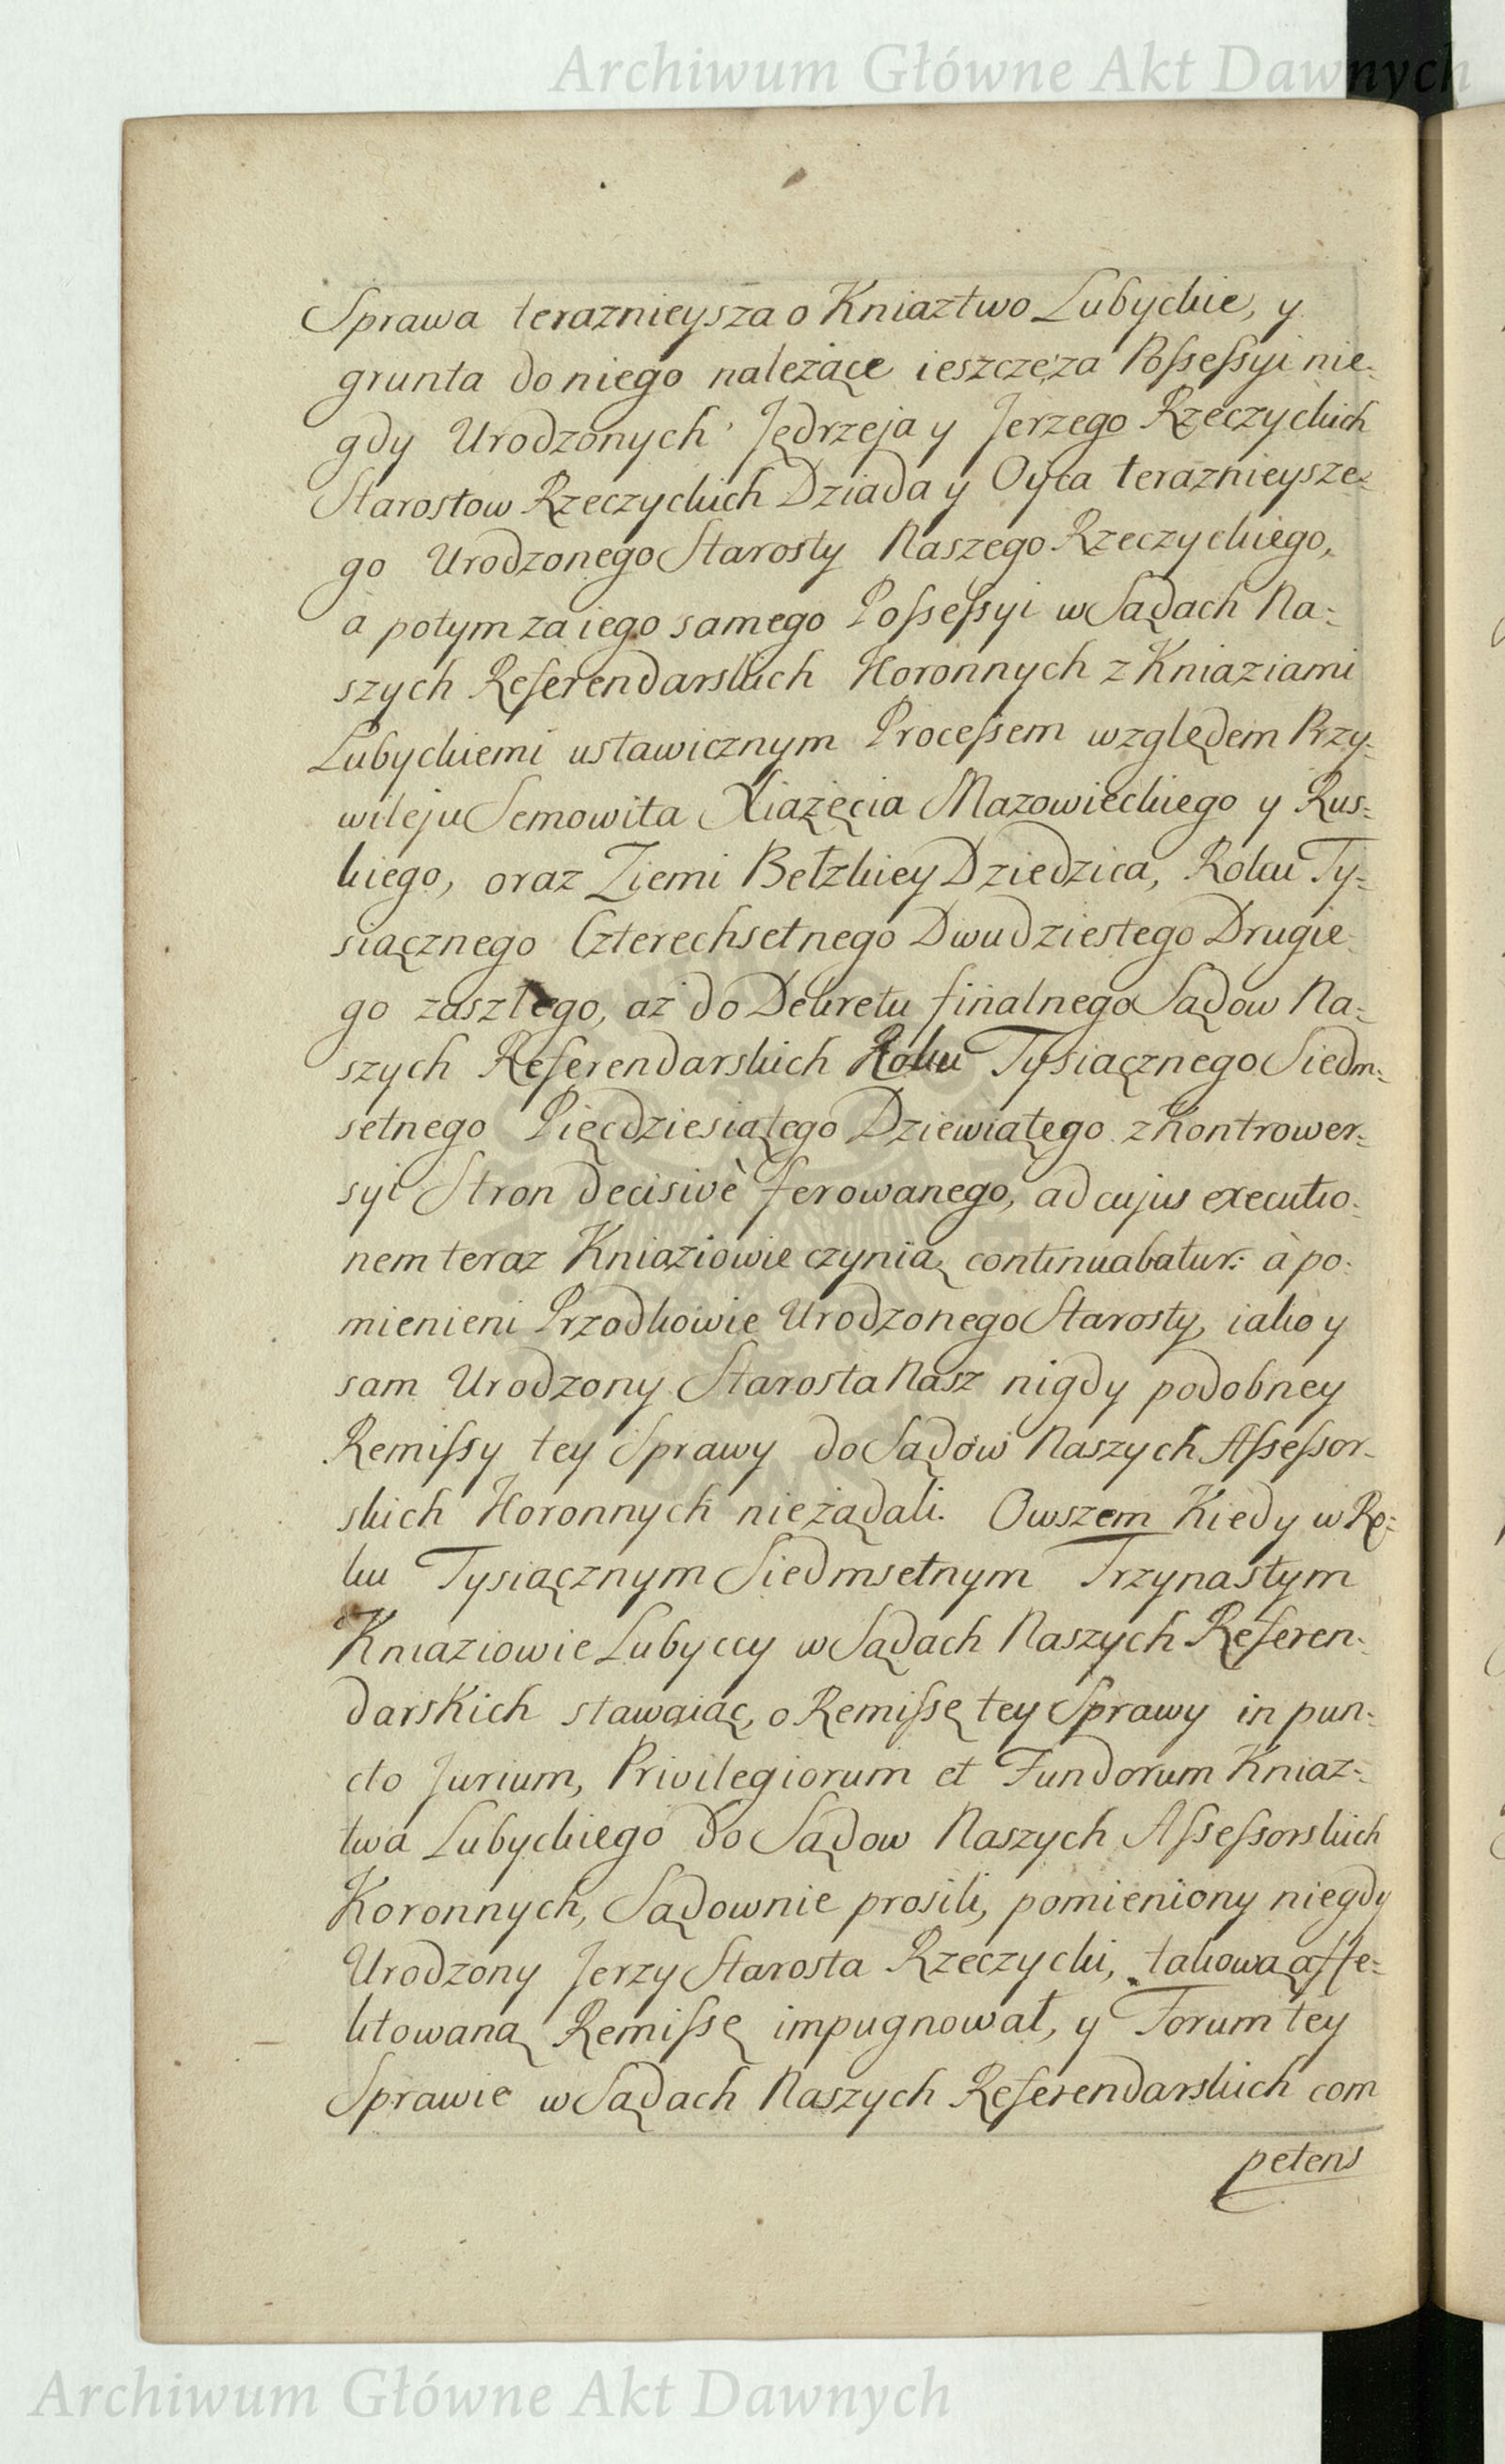 Archiwum Główne Akt Dawnych
Sprawa teraznieysza o Kniaztwo Lubyckie, y
grunta do niego należące ieszcze za Possessyi nie-
gdy Urodzonych Jędrzeja y Jerzego Rzeczyckich
Starostow Rzeczyckich Dziada y Oyca teraznieysze-
go Urodzonego Starosty Naszego Rzeczyckiego,
à potym za iego samego Possessyi w Sądach Na-
szych Referendarskich Koronnych z Kniaziami
Lubyckiemi ustawicznym Processem względem Przy-
wileju Semowita Xiążęcia Mazowieckiego y Rus-
kiego, oraz Ziemi Bełzkiey Dziedzica, Roku Ty-
siącznego Czterechsetnego Dwudziestego Drugie-
go zaszłego, aż do Dekretu finalnego Sądow Na-
szych Referendarskich Roku Tysiącznego Siedm-
setnego Pięćdziesiątego Dziewiątego z Kontrower-
syi Stron decisivè ferowanego, ad cujus executio-
nem teraz Kniaziowie czynią, continuabatur: à po-
mienieni Przodkowie Urodzonego Starosty, iako y
sam Urodzony Starosta Nasz nigdy podobney
Remissy tey Sprawy do Sądów Naszych Assessor-
skich Koronnych nie żądali. Owszem Kiedy w Ro-
ku Tysiącznym Siedmsetnym Trzynastym
Kniaziowie Lubyccy w Sądach Naszych Referen-
darskich stawaiąc, o Remissę tey Sprawy in pun-
cto Jurium, Privilegiorum et Fundorum Kniaz-
twa Lubyckiego do Sądow Naszych Assessorskich
Koronnych, Sądownie prosili, pomieniony niegdy
Urodzony Jerzy Starosta Rzeczycki, takową affe-
ktowaną Remissę impugnował, y Forum tey
Sprawie w Sądach Naszych Referendarskich com
petens
Archiwum Główne Akt Dawnych